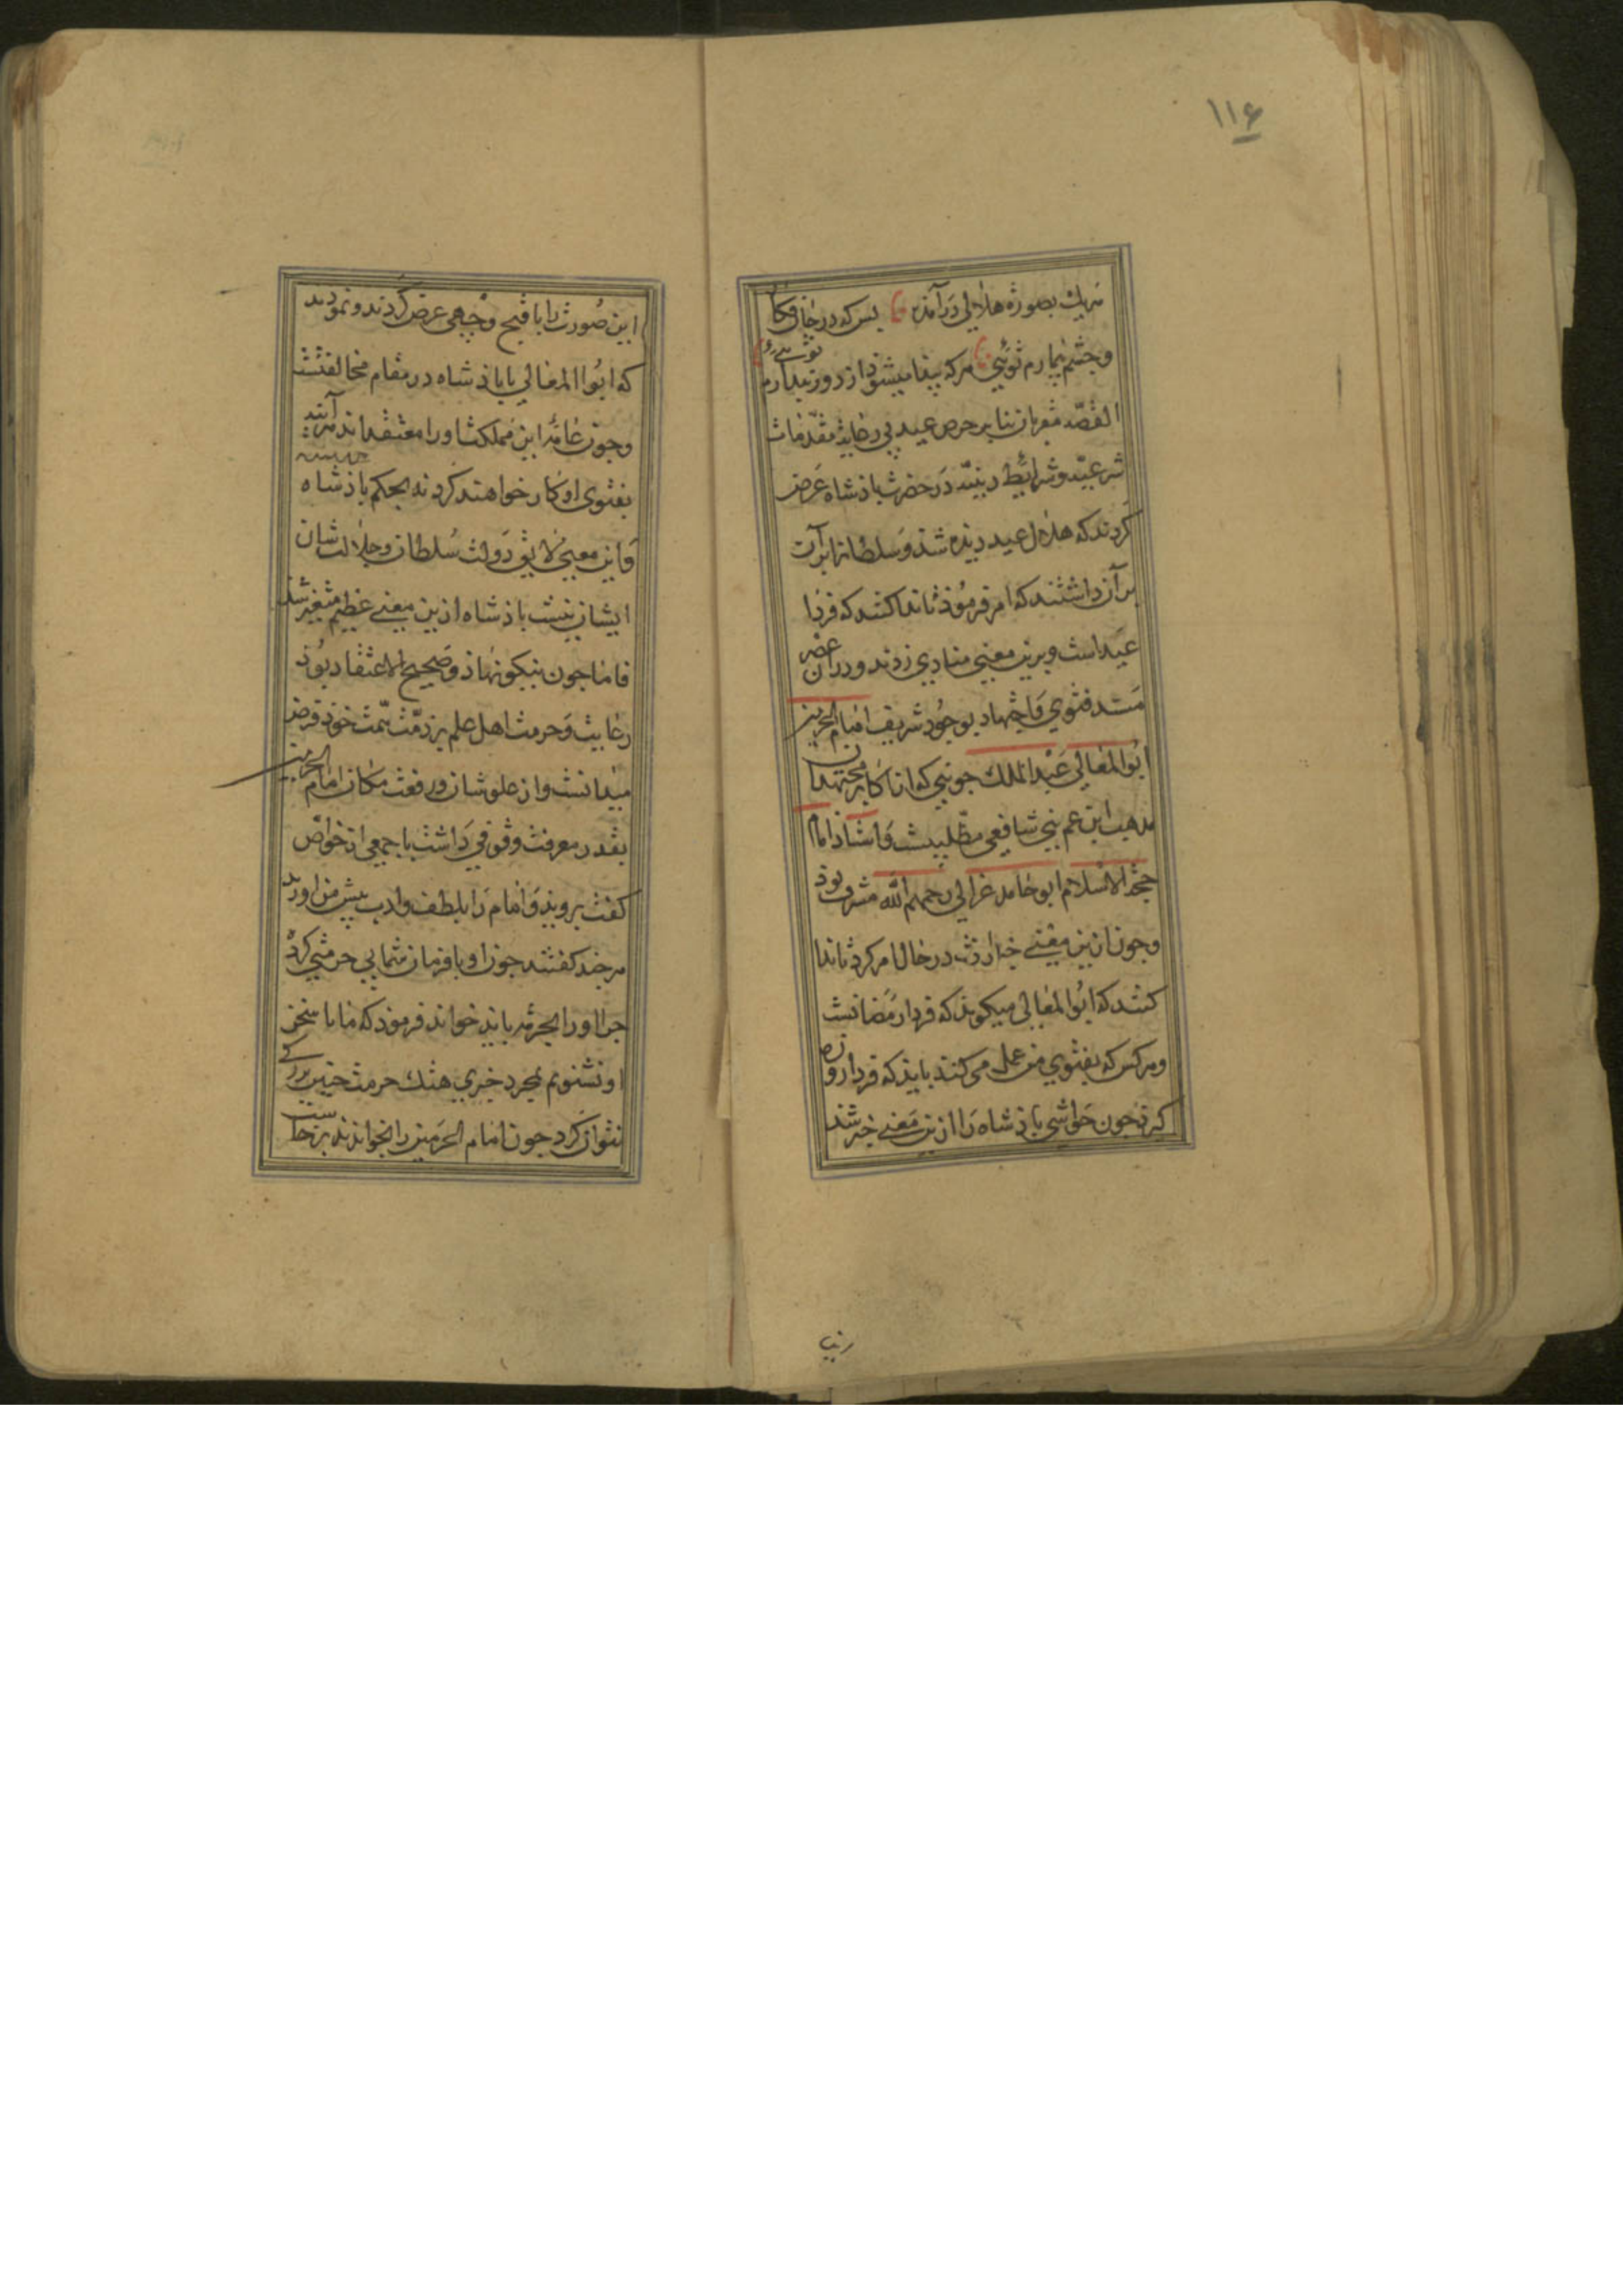 ۱۱۶
هریك بصورة هلالی درآمدن بس که در جان فکا
و چشم بیمارم توئی هرکه پیدا میشود از دور پندارم توئی
القصّه مقربان بنابر حرص عید بی رعایة مقدّمات
شرعیّه و شرایط دینیّه در حضرت باذشاه عرض
کردند که هلال عید دیده شد و سلطانرا بر آن
بر آن داشتند که امر فرموذ تا ندا کنند که فردا
عید است و برین معنی منادی زدند و در آن عصر
مسند فتوی و اجتهاد بوجود شریف امام الحرمین
ابوالمعالی عبدالملك جوینی که از اکابر مجتهدان
مذهب ابن عم نبی شافعی مطّلبیست و استاذ امام
حجة الاسلام ابو حامد غزالی رحمهم الله مشرف بوذ
و چون ازین معنی خبر یافت در حال امر کرد تا ندا
کنند که ابوالمعالی میکویذ که فردا رمضانست
و هرکس که بفتوی من عمل می کند بایذ که فردا روزه
کیرد چون حواشی باذشاه را ازین معنی خبر شد
این
این صورت را باقبح وجهی عرض کردند و نمودند
که ابوالمعالی با باذشاه در مقام مخالفتست
و چون عامّهٔ این مملکت او را معتقداند هرآینه
بفتوی او کار خواهند کرد نه بحکم باذشاه
و این معنی لایق دولت سلطان و جلالت شان
ایشان نیست باذشاه ازین معنی عظیم متغیر شد
فاما چون نیکونهاذ و صحیح الاعتقاد بوذ
رعایت و حرمت اهل علم بر ذمّت همّت خوذ فرض
میدانست و از علو شان و رفعت مکان امام الحرمین
بقدر معرفت وقوفی داشت با جمعی از خواص
کفت بروید و امام را بلطف و ادب پیش من آورید
هرچند کفتند چون او با فرمان شما بی حرمتی کرد
چرا او را بحرمة باید خواند فرموذ که ما تا سخن
او نشنویم بمجرد خبری هتك حرمت چنین بزرکی
نتوان کرد چون امام الحرمین را بخواندند برخاست